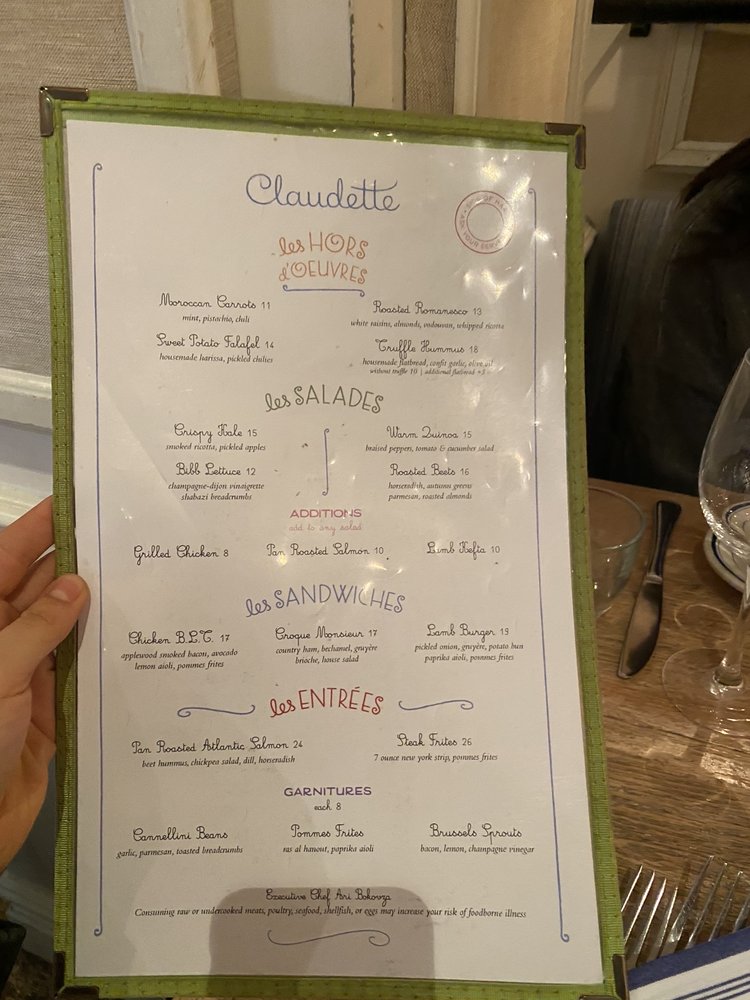 Claudette
les HORS
d'OEUVRES
Moroccan Carrots 11
mint, pistachio, chili
Roasted Romanesco 13
white raisins, almonds, vadouvan, whipped ricotta
Sweet Potato Falafel 14
housemade harissa, pickled chilies
Truffle Hummus 18
housemade flatbread, confit garlic, olive oil
without truffle 10 | additional flatbread +3
les SALADES
Crispy Kale 15
smoked ricotta, pickled apples
Warm Quinoa 15
braised peppers, tomato & cucumber salad
Bibb Lettuce 12
champagne-dijon vinaigrette
shabazi breadcrumbs
Roasted Beets 16
horseradish, autumn greens
parmesan, roasted almonds
ADDITIONS
add to any salad
Grilled Chicken 8
Pan Roasted Salmon 10
Lamb Kefta 10
les SANDWICHES
Chicken B.L.T. 17
applewood smoked bacon, avocado
lemon aioli, pommes frites
Croque Monsieur 17
country ham, bechamel, gruyère
brioche, house salad
Lamb Burger 19
pickled onion, gruyère, potato bun
paprika aioli, pommes frites
les ENTRÉES
Pan Roasted Atlantic Salmon 24
beet hummus, chickpea salad, dill, horseradish
Steak Frites 26
7 ounce new york strip, pommes frites
GARNITURES
each 8
Cannellini Beans
garlic, parmesan, toasted breadcrumbs
Pommes Frites
ras al hanout, paprika aioli
Brussels Sprouts
bacon, lemon, champagne vinegar
Executive Chef Ari Bokovza
Consuming raw or undercooked meats, poultry, seafood, shellfish, or eggs may increase your risk of foodborne illness